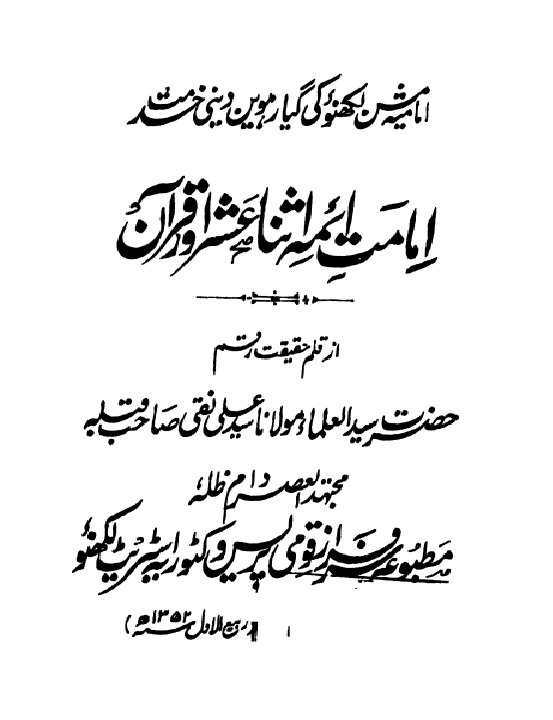 امامیہ مشن لکھنؤ کی گیارہویں دینی خدمت
امامتِ ائمہ اثنا عشر اور قرآن
از قلم حقیقت رقم
حضرت سید العلماء مولانا سید علی نقی صاحب قبلہ
مجتہد العصر دام ظلہٗ
مطبوعہ سرفراز قومی پریس وکٹوریہ اسٹریٹ لکھنؤ
ربیع الاول سنہ ۱۳۵۲ھ)